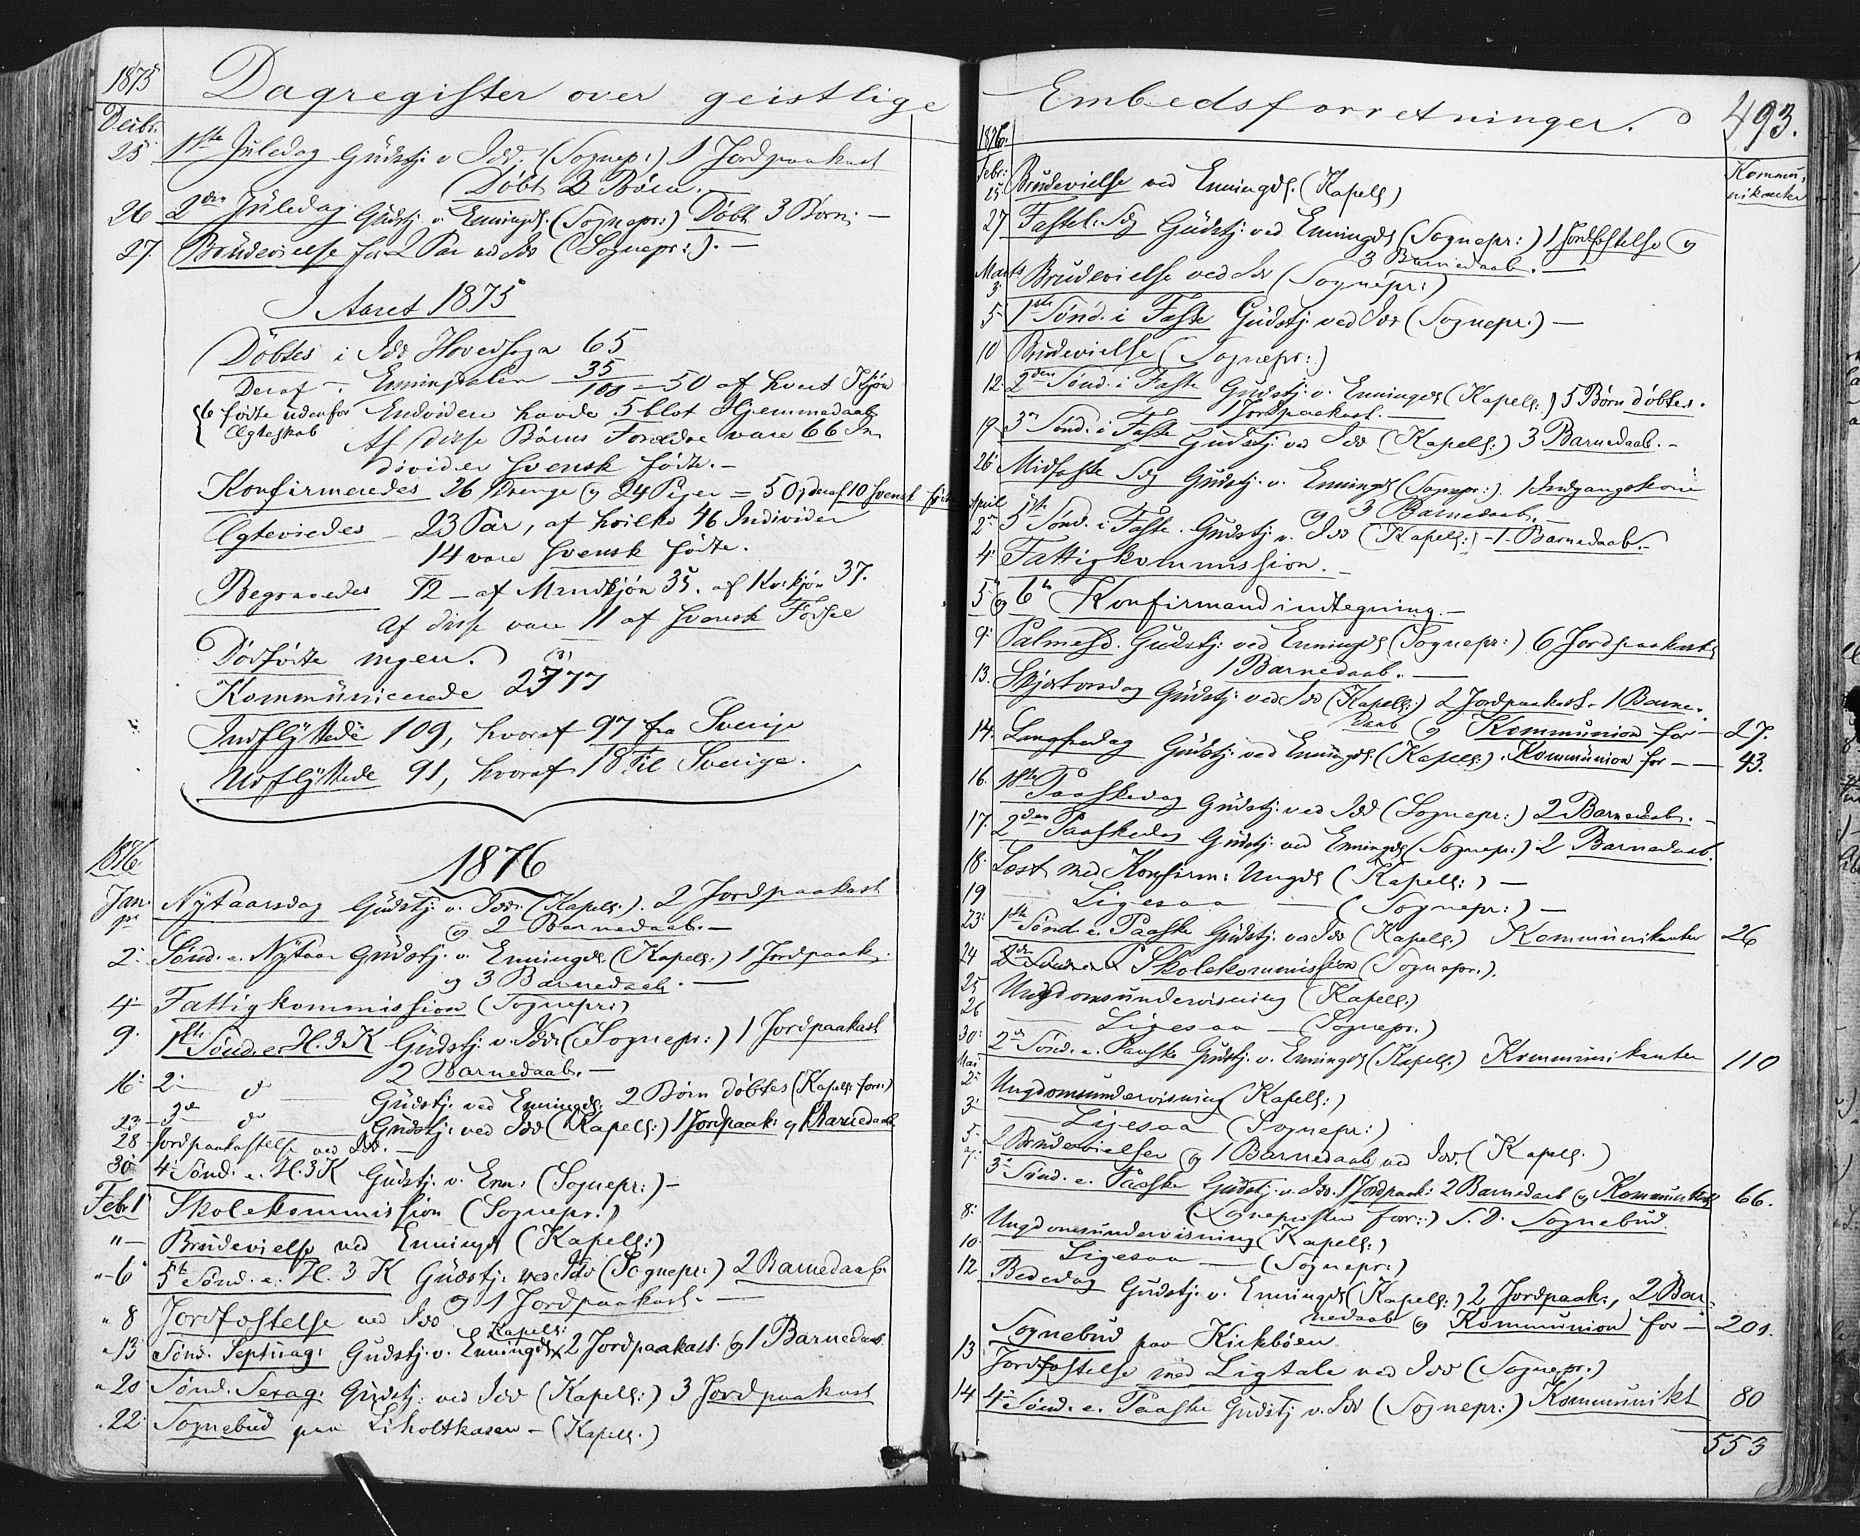 1875 Dagregister over geistlige
Decbr.
25 1ste Juledag Gudstj. v Idd. (Sognepr:) 1 Jordpaakast
Døbt 2 Børn.
26 2den Juledag Gudstj. v. Enningd. (Sognepr:) Døbt 3 Børn. —
27. Brudevielse for 2 Par ved Idd (Sognepr:). —
I Aaret 1875
Døbtes i Idd Hovedsogn 65
Deraf — i Enningdalen 35
100 — 50 af hvert Kjøn
6 fødte udenfor Ægteskab
Endvidere havde 5 blot Hjemmedaab
Af disse Børns Forældre vare 66 In-
divider svensk fødte. —
Konfirmeredes 26 Drenge og 24 Piger = 50, deraf 10 svensk fødte
Ægteviedes — 23 Par, af hvilke 46 Individer
14 vare svensk fødte.
Begravedes 72 — af Mandkjøn 35. af Kvkjøn 37.
Af disse vare 11 af svensk Fødsel
Dødfødte ingen.
Kommunicerede 2377
Indflyttede 109, hvoraf 97 fra Sverige
Udflyttede 91, hvoraf 18 til Sverige.
1876 1876
Jan.
1ste Nytaarsdag Gudstj. v. Idd. (Kapell:). 2 Jordpaakast
og 2 Barnedaab. —
2. Sønd. e. Nytaar Gudstj. v. Enningd. (Kapell:) 1 Jordpaak.
og 3 Barnedaab. —
4 Fattigkommission (Sognepr:)
9. 1ste Sønd. e. H. 3 K Gudstj. v. Idd. (Sognepr:) 1 Jordpaakast
2 Barnedaab. —
16. 2. — d° — Gudstj. ved Enningd. 2 Børn døbtes (Kapell. forr:)
23 3de — d° — Gudstj. ved Idd (Kapell:) 1 Jordpaak: og 1 Barnedaab
28 Jordpaakastelse ved Idd. —
30 4. Sønd. e. H. 3 K Gudstj. v. Enn. (Sognepr:) —
Febr 1 Skolekommission (Sognepr.)
" — Brudevielse ved Enningd (Kapell:)
" 6 5te Sønd. e. H. 3 K Gudstj. ved Idd (Sognepr:) 2 Barnedaab.
og 1 Jordpaakast. —
" 8 Jordfæstelse ved Idd
" 13 Sønd. Septuag: Gudstj. v. Enningd Kapell: 2 Jordpaakast. og 1 Barnedaab
" 20 Sønd. Sexag: Gudstj. ved Idd (Kapell:) 3 Jordpaakast
" 22 Sognebud paa Liholtkasen — (Kapell.)
Embedsforretninger. 493.
1876. Kommu-
nikanter
Febr:
25 Brudevielse ved Enningd. (Kapell)
27 Fastel. Sdg Gudstj. ved Enningd (Sognepr:) 1 Jordfæstelse og
3 Barnedaab. —
Marts
3 Brudevielse ved Idd (Sognepr:)
5 1ste Sønd. i Faste Gudstj. ved Idd (Sognepr.) —
10 Brudevielse (Sognepr:)
12. 2den Sønd. i Faste Gudstj. v. Enningd (Kapell:) 5 Børn døbtes.
1 Jordpaakast. —
19 3die Sønd. i Faste Gudstj. ved Idd (Kapell:) 3 Barnedaab. —
26 Midfaste Sdg Gudstj. v. Enningd (Sognepr:). 1 Indgangskone
og 3 Barnedaab.
April
2 5te Sønd. i Faste. Gudstj. v. Idd (Kapell:) — 1. Barnedaab. —
4 Fattigkommission. —
5 og 6 Konfirmandindtegning. —
9 Palmesd. Gudstj. ved Enningd (Sognepr:) 6 Jordpaakast
1 Barnedaab. —
13. Skjærtorsdag Gudstj. ved Idd (Kapell:) 2 Jordpaakast — 1 Barne-
daab og Kommunion for — 27.
14. Langfredag Gudstj. ved Enningd. (Kapell.). Kommunion for — 43.
16. 1ste Paaskedag Gudstj. ved Idd (Sognepr:) 2 Barnedaab. —
17 2den Paaskedag Gudstj. ved Enningd (Sognepr:) 2 Barnedaab.
18. Læst med Konfirm: Ungd. (Kapell:) —
19 — Ligesaa — (Sognepr:) —
23 1ste Sønd. e. Paaske Gudstj. ved Idd (Kapell.) Kommunikanter 26
24 Skolekommission (Sognepr.).
25 Ungdomsundervisning (Kapell.)
26 — Ligesaa — (Sognepr.)
30. 2den Sønd. e. Paaske Gudstj. v. Enningd (Kapell.) Kommunikanter 110
Mai
2. Ungdomsundervisning (Kapell:)
3. — Ligesaa — (Sognepr:)
5. 2 Brudevielser og 1 Barnedaab ved Idd. (Kapell.)
7. 3. Sønd. e. Paaske Gudstj. v. Idd. 1 Jordpaak: 2 Barnedaab og Kommunikant 66.
(Sognepresten forr:) S. D. Sognebud.
8. Ungdomsundervisning (Kapell:)
10. — Ligesaa — (Sognepr:)
12 Bededag Gudstj. v. Enningd (Kapell:) 2 Jordpaak:, 2 Bar-
nedaab og Kommunion for — 201.
Sognebud paa Kirkbøen
13. Jordfæstelse med Ligtale ved Idd (Sognepr:)
14 4. Sønd. e. Paaske Gudstj v. Idd (Sognepr:) Kommunikt 80
553